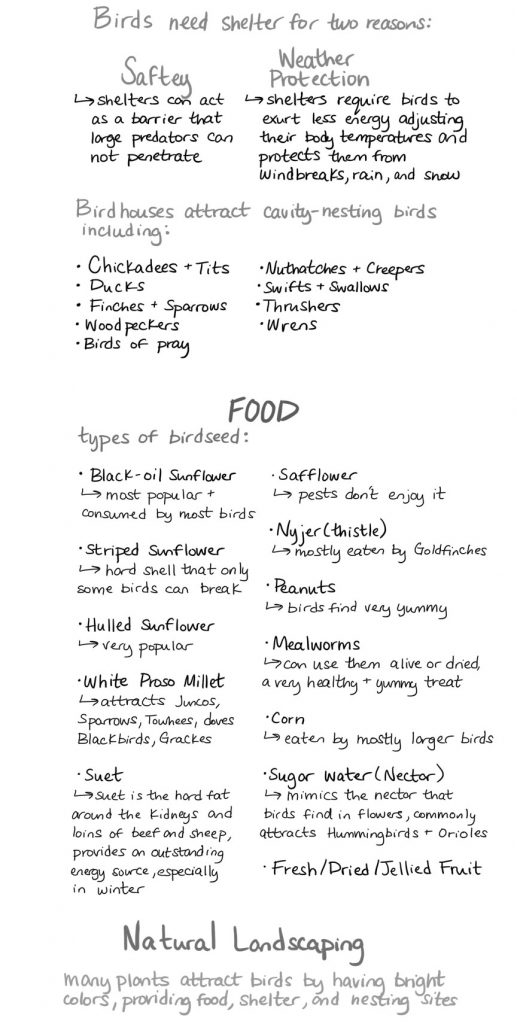 Birds need shelter for two reasons:
Saftey
↳ shelters can act
as a barrier that
large predators can
not penetrate
Weather
Protection
↳ shelters require birds to
exurt less energy adjusting
their body temperatures and
protects them from
windbreaks, rain, and snow
Birdhouses attract cavity-nesting birds
including:
• Chickadees + Tits
• Ducks
• Finches + Sparrows
• Woodpeckers
• Birds of pray
• Nuthatches + Creepers
• Swifts + Swallows
• Thrushers
• Wrens
FOOD
types of birdseed:
• Black-oil Sunflower
↳ most popular +
consumed by most birds
• Striped Sunflower
↳ hard shell that only
some birds can break
• Hulled Sunflower
↳ very popular
• White Proso Millet
↳ attracts Juncos,
Sparrows, Towhees, doves
Blackbirds, Grackes
• Suet
↳ suet is the hard fat
around the kidneys and
loins of beef and sheep,
provides an outstanding
energy source, especially
in winter
• Safflower
↳ pests don't enjoy it
• Nyjer (thistle)
↳ mostly eaten by Goldfinches
• Peanuts
↳ birds find very yummy
• Mealworms
↳ can use them alive or dried,
a very healthy + yummy treat
• Corn
↳ eaten by mostly larger birds
• Sugar water (Nector)
↳ mimics the nector that
birds find in flowers, commonly
attracts Hummingbirds + Orioles
• Fresh/Dried/Jellied Fruit
Natural Landscaping
many plants attract birds by having bright
colors, providing food, shelter, and nesting sites